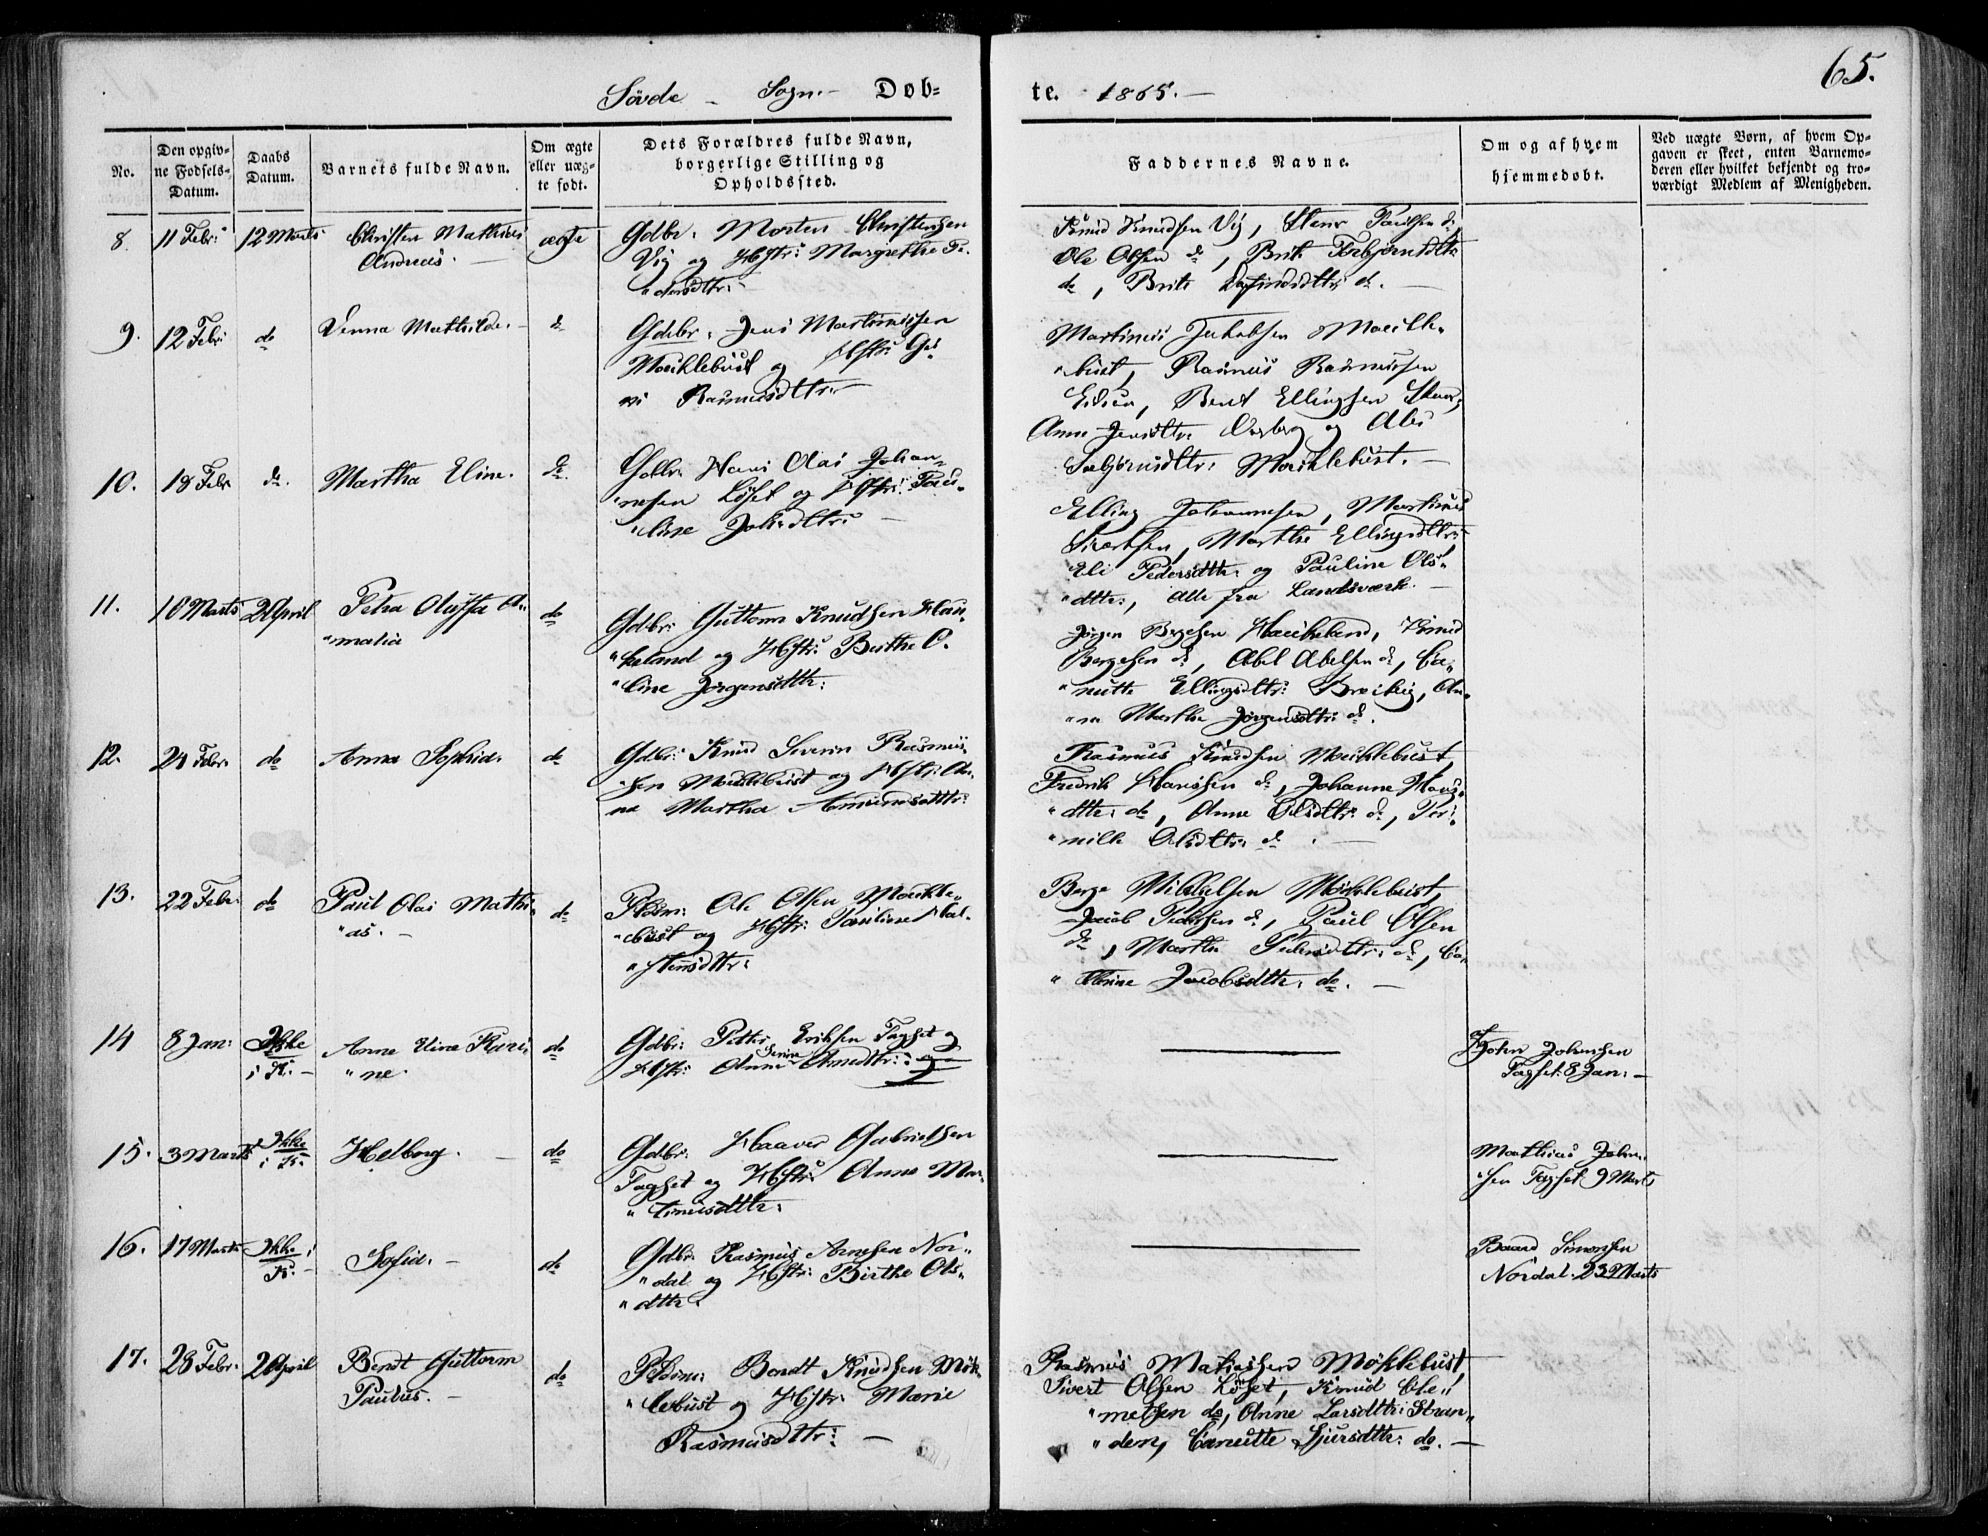 65.
Søvde – Sogn – Døb-
te. 1865. –
No.
Den opgiv-
ne Fødsels-
Datum.
Daabs
Datum.
Barnets fulde Navn.
Om ægte
eller uæg-
te født.
Dets Forældres fulde Navn,
borgerlige Stilling og
Opholdssted.
Faddernes Navne.
Om og af hvem
hjemmedøbt.
Ved uægte Børn, af hvem Op-
gaven er skeet, enten Barnemo-
deren eller hvilket bekjendt og tro-
værdigt Medlem af Menigheden.
8. 11 Febr: 12 Marts
Christen Mathias
Andreas. –
ægte
Gdbr. Morten Christensen
Vig og Hstr: Margrethe Pe-
"dersdtr: –
Knud Knudsen Vig, Paulsen do,
Ole Olsen do, Brit Torbjørnsdtr
do, Brite do. –
9. 12 Febr: do
Mathilde. –
do
Gdbr. Jens Martinussen
Moeklebust og Hstr:
Rasmusdtr: –
Martinus Jakobsen Moeekle-
"bust, Rasmus Rasmussen
Eidsen, Bent Ellingsen
Anne Jensdtr og
Moeklebust. –
10. 18 Febr do.
Martha Eline.
do.
Gdbr: Hans Olai Johan-
"nesen Løset og Hstr: Pau-
"line Johsdtr: –
Elling Johannesen, Martinus
Sivertsen, Marthe Ellingsdtr:
Eli Pedersdtr. og Pauline Ols-
"dtr:, alle fra Landsværk. –
11. 10 Marts 2 April
Petra Oluffa A-
"malia
do
Gdbr: Guttorm Knudsen Hau-
"keland og Hstr: Berthe O-
"line Jørgensdtr:
Jørgen Bergesen Haukeland, Knud
Bergesen do, Abel Abelsen do, Ca-
"nutte Ellingsdtr: Breivig, An-
"na Marthe Jørgensdtr: do.
12. 24 Febr: do
Anna Sophie.
do
Gdbr: Knud Severin Rasmus-
"sen Moeklebust og Hstr: An-
na Martha Amundsdtr:
Rasmus Knudsen Moeklebust,
Fredrik Hansen do, Johanne Hans-
"dtr: do, Anne Olsdtr: do, Per-
"nille Olsdtr: do. –
13. 22 Febr: do
Paul Olai Mathi-
"as. –
do
Pldsm: Ole Olsen Moekle-
"bust og Hstr: Pauline Hal-
"stensdtr:
Berge Mikkelsen Moeklebust,
Jacob Pedersen do, Paul Olsen
do, Marthe Pedersdtr: do, Ca-
"thrine Jacobsdtr: do. –
14 8 Jan: Ikke
i K. –
Anne Eline Kari-
"ne.
do
Gdbr: Petter Eriksen Fagset og
Hstr: Anne Serine Arnedtr:
John Johnsen
Fagset 8 Jan: –
15. 3 Marts Ikke
i K.
Helborg. –
do
Gdbr: Haaver Gabrielsen
Fagset og Hstr: Anne Mar-
"tinusdtr:
Mathias John-
"sen Fagset 9 Marts
16. 17 Marts Ikke i
K. –
Sofie. –
do
Gdbr: Rasmus Arnesen Nor-
"dal og Hstr: Birthe Ols-
"dtr.
Baard Simonsen
Nordal. 23 Marts
17. 28 Febr. 2 April
Bendt Guttorm
Paulus. –
do
Pldsm: Bendt Knudsen Møk-
"lebust og Hstr: Marie
Rasmusdtr: –
Rasmus Matiassen Møklebust,
Sivert Olsen Løset, Knud Cle-
"metsen do, Anne Larsdtr: Stran-
"den, Canutte Sjursdtr: do. –